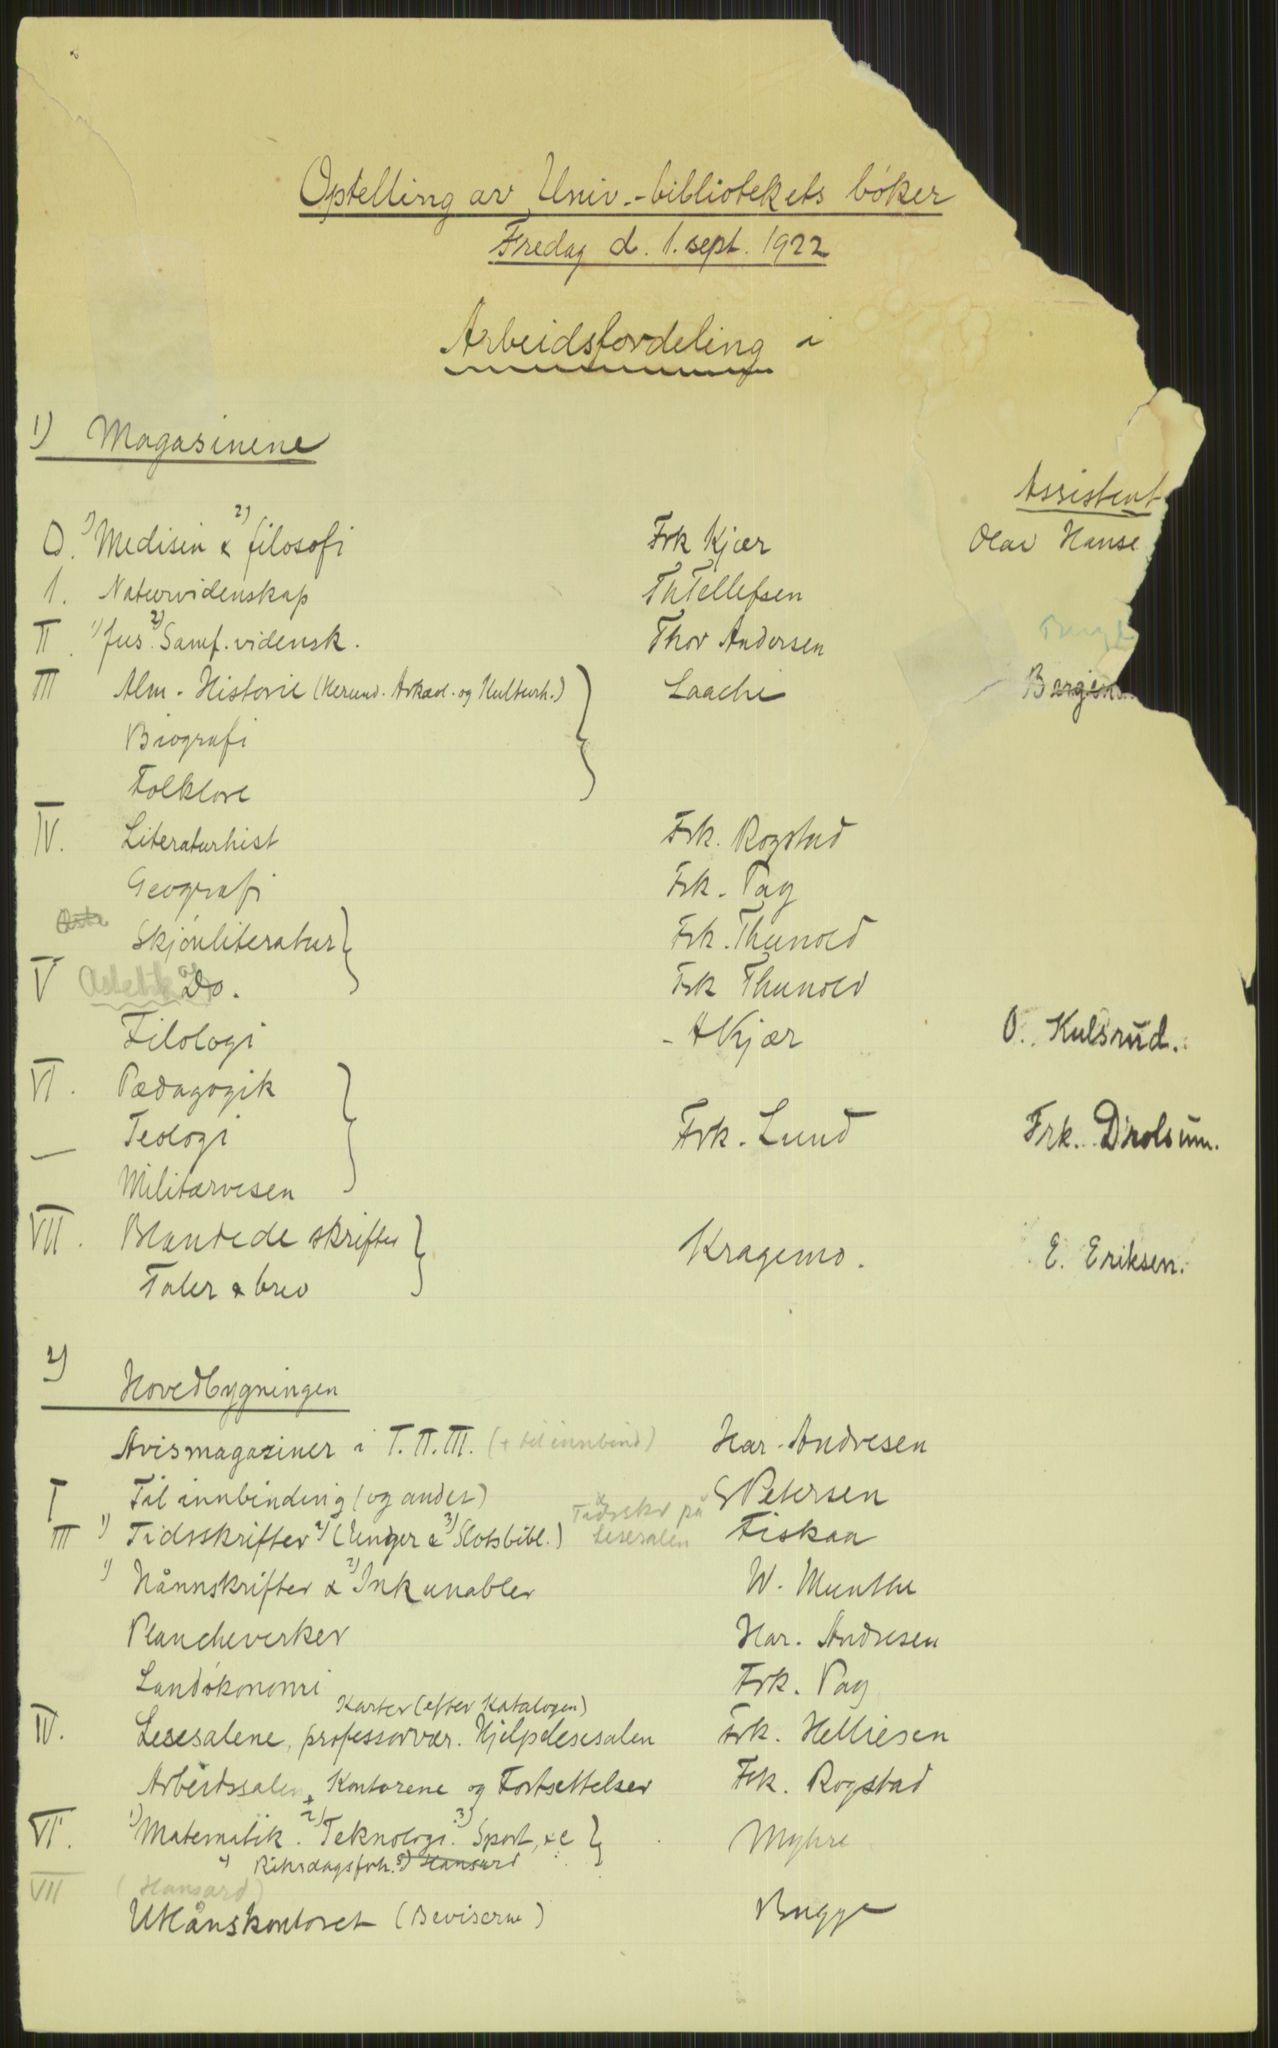 Optelling av Univ.-bibliotekets bøker
Fredag d. 1. sept. 1922
Arbeidsfordeling i
1) Magasinene
Assistent
O. 1) Medisin & 2) filosofi Frk Kjær Olav Hanse
1. Naturvidenskap Th Tellefsen
II. 1) Jus. 2) Samf. vidensk. Thor Andersen
III Alm. Historie (Herund. Arkæol. og Kulturh.) Laache
Biografi
Folklore
IV. Literaturhist Frk. Rogstad
Geografi Frk. Pag
Skjønliteratur Frk. Thunold
V Do. Frk Thunold
Filologi - A Kjær O. Kulsrud.
VI. Pædagogik
— Teologi Frk. Lund Frk. Drolsum.
Militærvesen
VII. Blandede skrifter Kragemo. E. Eriksen.
Taler & brev
2) Hovedbygningen
Avismagasiner i I. II. III. (+ til innbind) Har. Andresen
I Til innbinding (og andet) Petersen
III 1) Tidsskrifter 2) (Unger & 3) Slotsbibl.) Tidsskr på Lesesalen Fiskaa
1) Hånnskrifter & 2) Inkunabler W. Munthe
Plancheverker Har. Andresen
Landøkonomi Frk. Pag
Karter (efter Katalogen)
IV. Lesesalene, professorvær. Hjelpelesesalen Frk. Helliesen
Arbeidssalen, Kontorene og Fortsettelser Frk. Rogstad
VI. 1) Matematik. 2) Teknologi. 3) Sport, Myhre
4) Riksdagsforh. 5) Hansard
VII (Hansard)
Utlånskontoret (Beviserne) Bugge